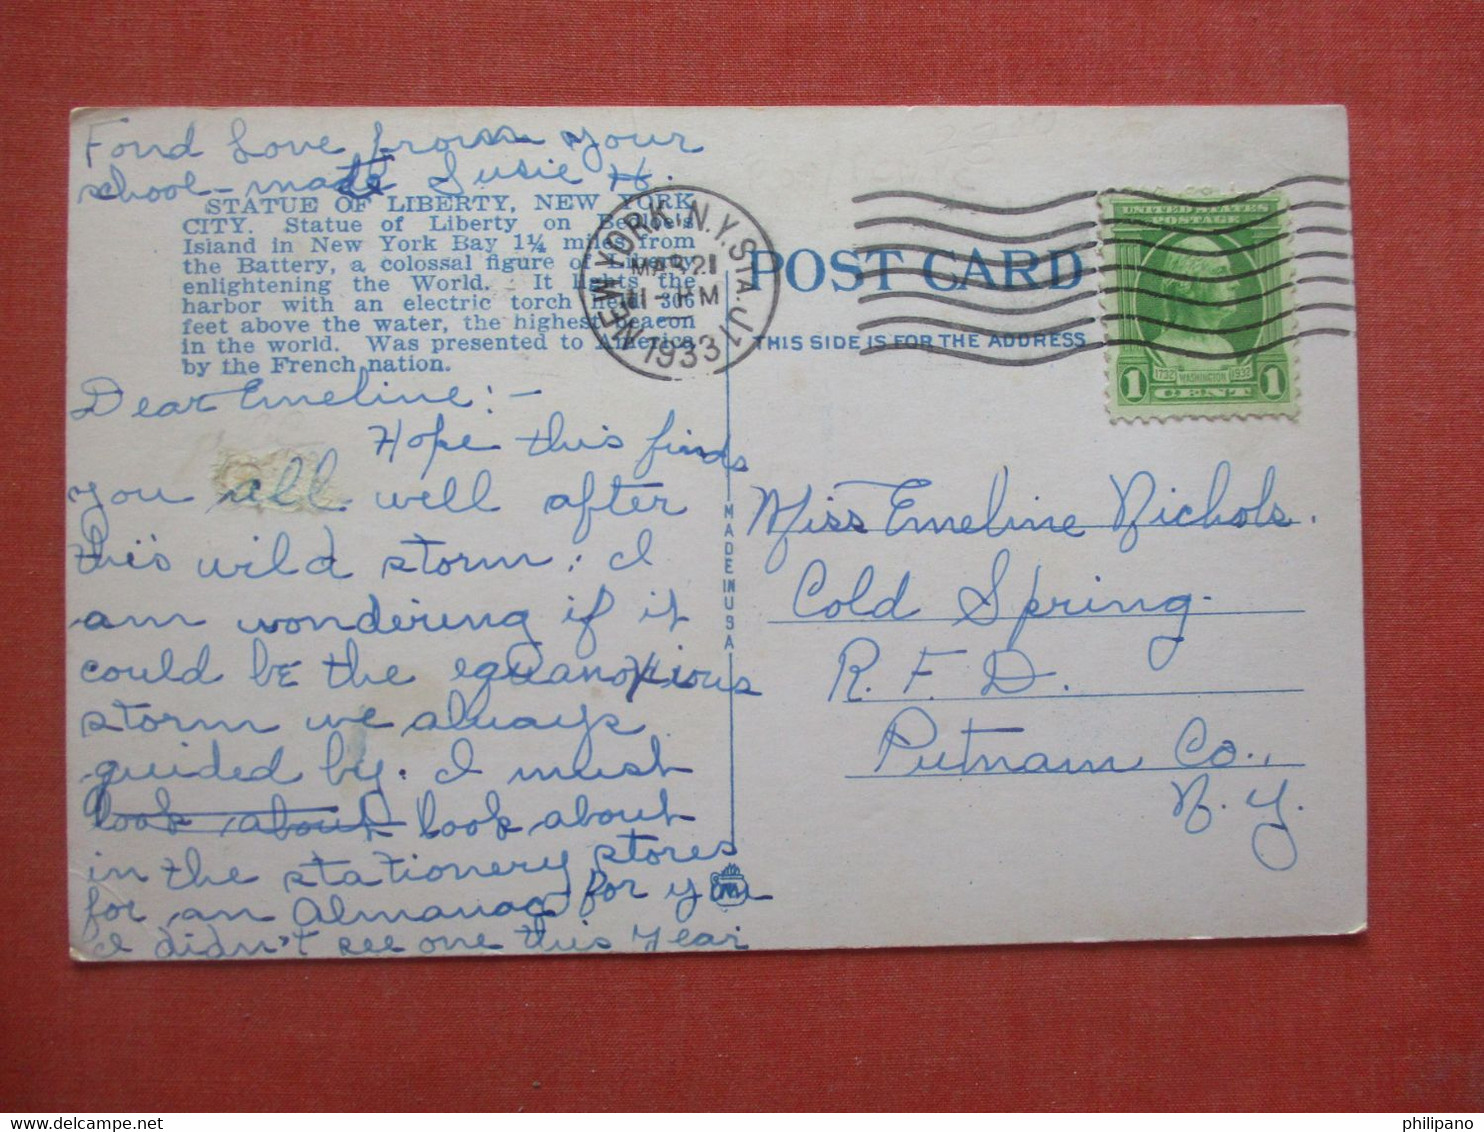 Fond Love from your
school-mate Susie H.
STATUE OF LIBERTY, NEW YORK
CITY. Statue of Liberty on Bedloe's
Island in New York Bay 1¼ miles from
the Battery, a colossal figure of Liberty
enlightening the World. It lights the
harbor with an electric torch held 306
feet above the water, the highest beacon
in the world. Was presented to America
by the French nation.
Dear Emeline:-
Hope this finds
you all well after
this wild storm; I
am wondering if it
could be the equanoxious
storm we always
guided by. I must
look about look about
in the stationery stores
for an Almanac for you
I didn't see one this year
MADE IN USA
NEW YORK, N.Y. STA. J
MAR 21
1933
POST CARD
THIS SIDE IS FOR THE ADDRESS
UNITED STATES
POSTAGE
1732 WASHINGTON 1932
1 CENT 1
Miss Emeline Nichols.
Cold Spring.
R. F. D.
Putnam Co.,
N. Y.
delcampe.net
philipano